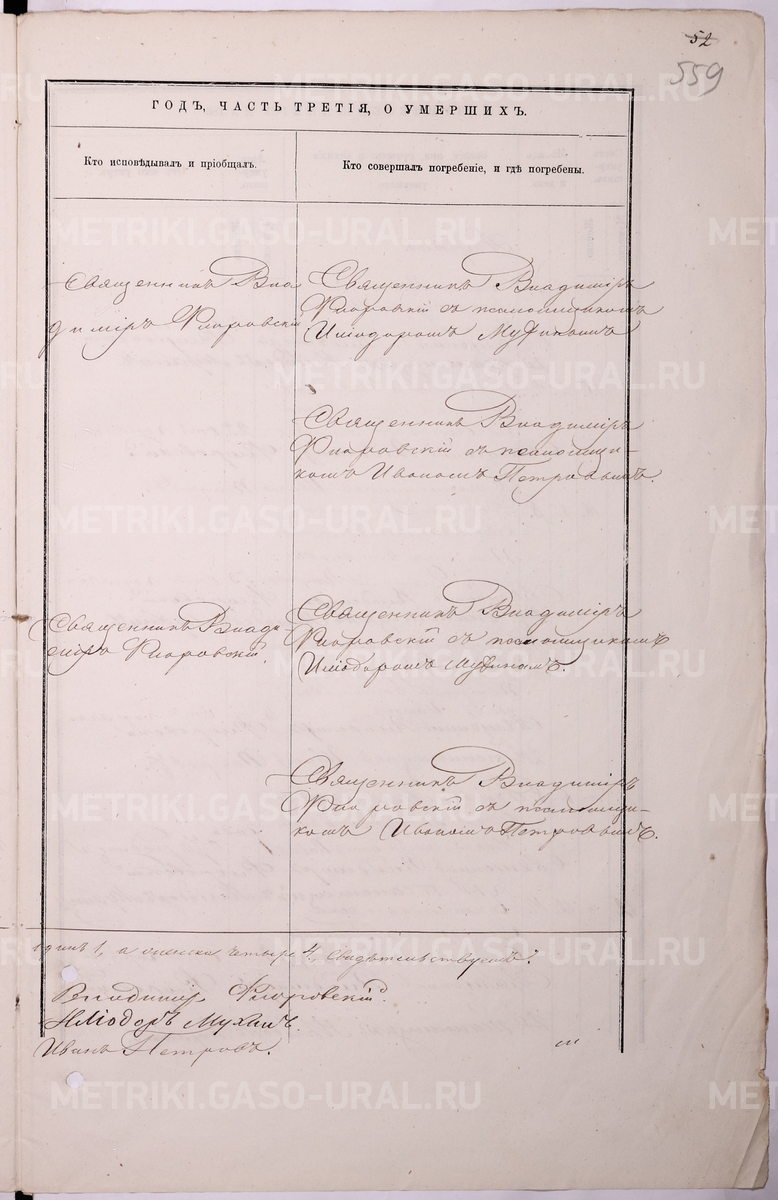 52
559
ГОДЪ, ЧАСТЬ ТРЕТІЯ, О УМЕРШИХЪ.
Кто исповѣдывалъ и пріобщалъ.
Кто совершалъ погребеніе, и гдѣ погребены.
Священникъ Вла
димiръ Флоровскiй
Священникъ Владимiръ
Флоровскiй съ псаломщикомъ
Илiодоромъ Мухинымъ
Священникъ Владимiръ
Флоровскiй съ псаломщи-
комъ Иваномъ Петровымъ.
Священникъ Влади-
мiръ Флоровскiй.
Священникъ Владимiръ
Флоровскiй съ псаломщикомъ
Илiодоромъ Мухинымъ.
Священникъ Владимiръ
Флоровскiй съ псаломщи-
комъ Иваномъ Петровымъ.
одинъ 1, а женска четыре 4, свидѣтельствуемъ:
Владимиръ Флоровскiй.
Илiодоръ Мухинъ.
Иванъ Петровъ.
METRIKI.GASO-URAL.RU